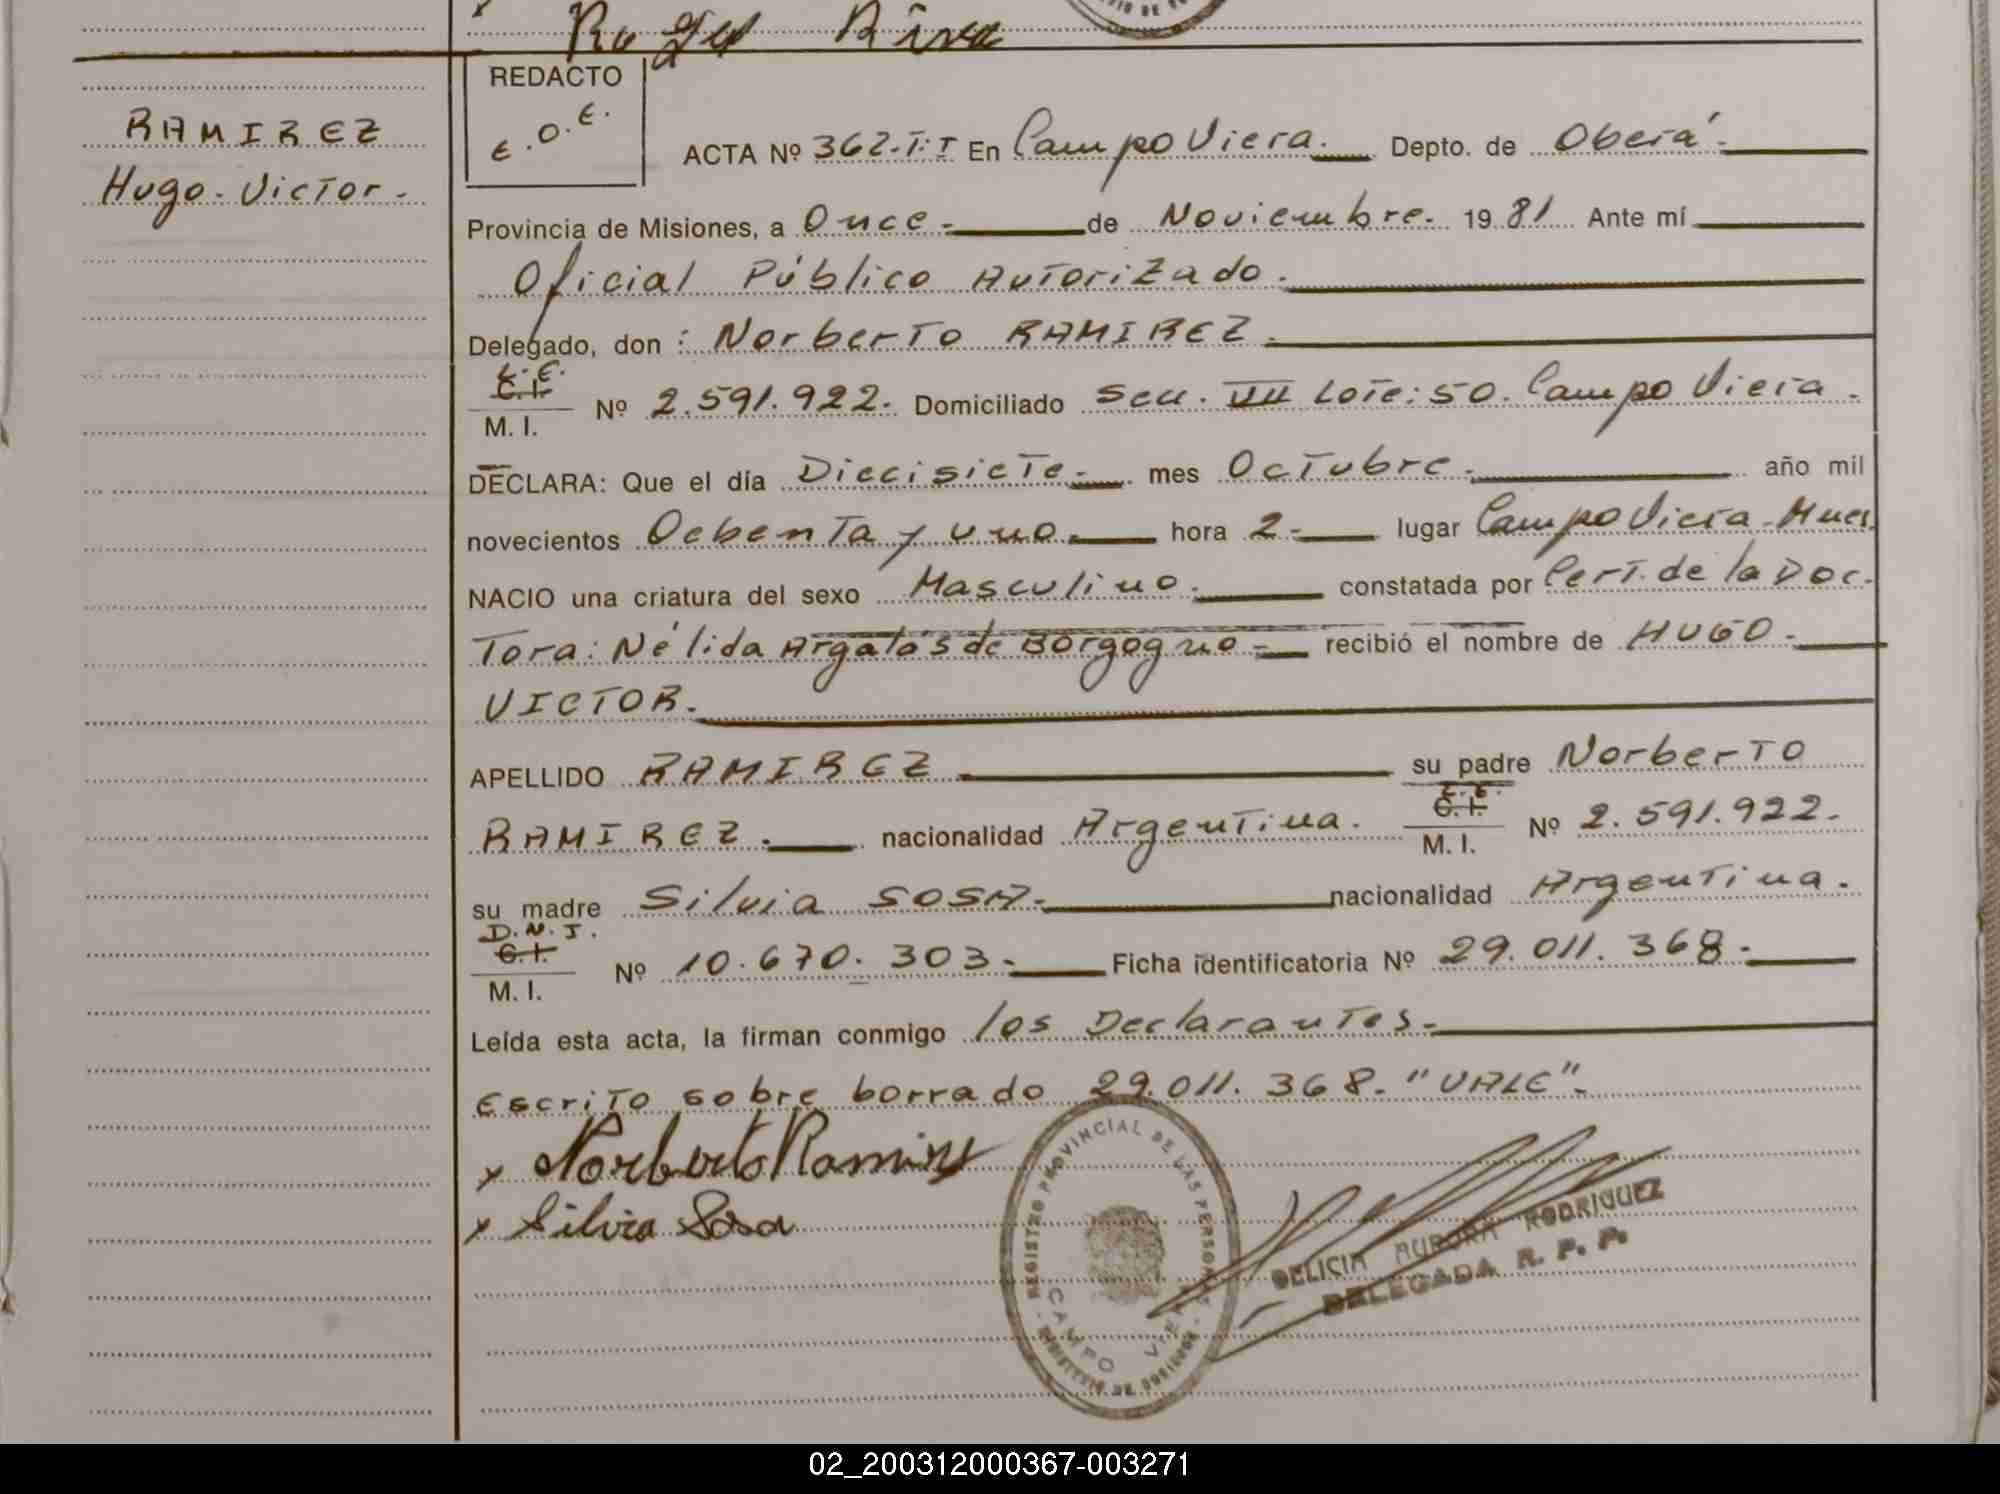 Roger Riva
REDACTO
E.O.E.
RAMIREZ
Hugo-Victor-
ACTA Nº 362-T:I En Campo Viera. Depto. de Oberá-
Provincia de Misiones, a Once- de Noviembre- 1981 Ante mí
Oficial Público Autorizado.
Delegado, don: Norberto RAMIREZ.
L.E.
C.I.
M. I. Nº 2.591.922. Domiciliado Secc. VII Lote: 50. Campo Viera-
DECLARA: Que el día Diecisiete- mes Octubre- año mil
novecientos Ochenta y uno- hora 2- lugar Campo Viera-
NACIO una criatura del sexo Masculino- constatada por Cert. de la Doc-
Tora: Nélida Argalas de Borgogno- recibió el nombre de HUGO-
VICTOR.
APELLIDO RAMIREZ su padre Norberto
L.E.
C.I.
RAMIREZ. nacionalidad Argentina. M. I. Nº 2.591.922.
su madre Silvia SOSA- nacionalidad Argentina.
D.N.I.
C.I.
M. I. Nº 10.670.303- Ficha identificatoria Nº 29.011.368-
Leída esta acta, la firman conmigo los Declarantes-
Escrito sobre borrado 29.011.368-"VALE"-
x Norberto Ramirez
x Silvia Sosa
REGISTRO PROVINCIAL DE LAS PERSONAS
CAMPO VIERA
MINISTERIO DE GOBIERNO
DELICIA AURORA RODRIGUEZ
DELEGADA R. P. P.
02_200312000367-003271